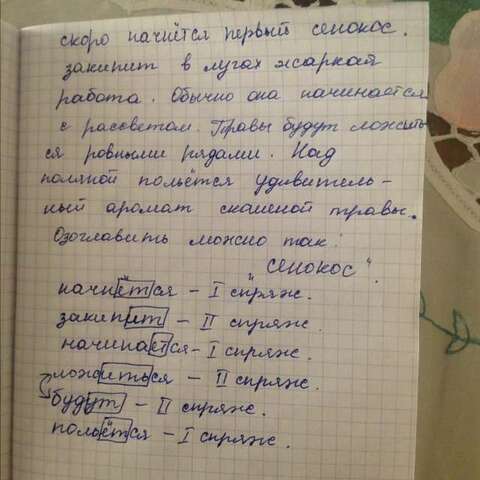 скоро начнётся первый сенокос.
закипит в лугах жаркая
работа. Обычно она начинается
с рассветом. Травы будут ложить-
ся ровными рядами. Над
поляной польётся удивитель-
ный аромат скошеной травы.
Озоглавить можно так:
"сенокос".
начнётся - I спряж.
закипит - II спряж.
начинается - I спряж.
ложиться - II спряж.
будут - II спряж.
польётся - I спряж.